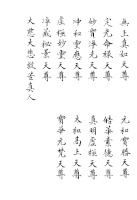 無上真如天尊
定光天尊
妙寶淨光天尊
神和天尊
虛極妙靈天尊
淨藏秘景天尊
大慈大悲救苦真人
元和寶勝天尊
皓華素德天尊
真明虛極天尊
太和高上天尊
寶華元梵天尊